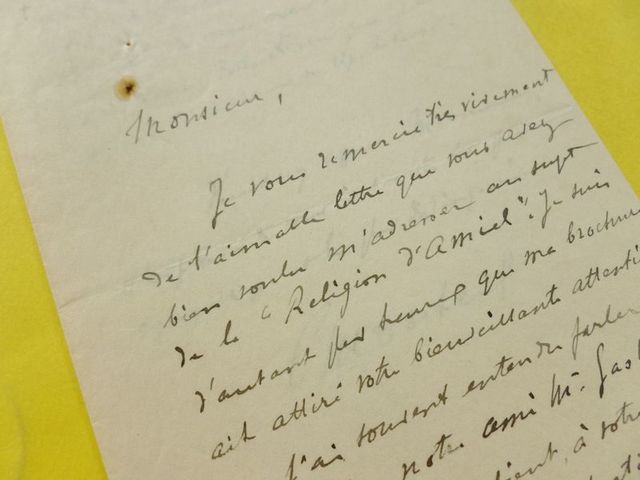 Monsieur,
Je vous remercie très vivement
de l'aimable lettre que vous avez
bien voulu m'adresser au sujet
de la "Religion d'Amiel". Je suis
d'autant plus heureux que ma brochure
ait attiré votre bienveillante attenti
J'ai souvent entendu parler
notre ami Mr. Gas
à votre